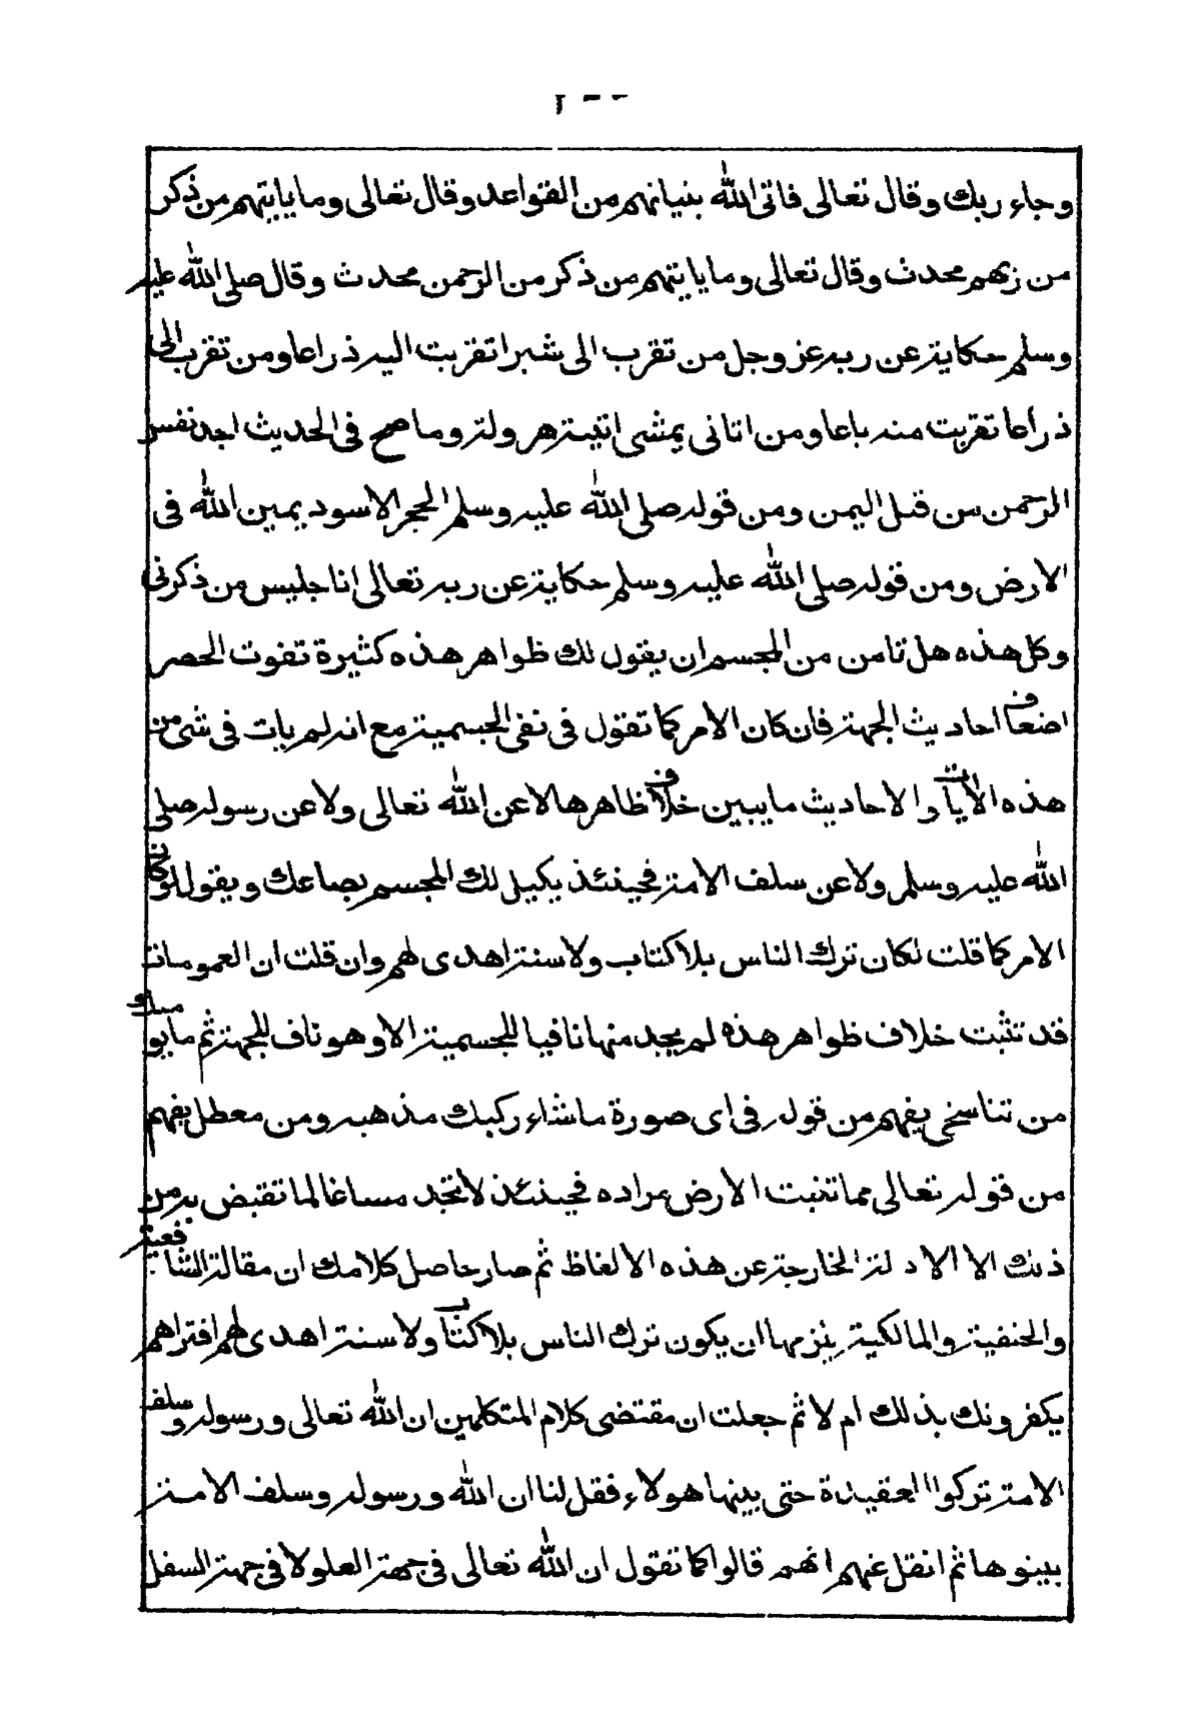 وجاء ربك وقال تعالى فاتى الله بنيانهم من القواعد وقال تعالى وما ياتيهم من ذكر
من ربهم محدث وقال تعالى وما ياتيهم من ذكر من الرحمن محدث وقال صلى الله عليه
وسلم حكاية عن ربه عز وجل من تقرب الى شبرا تقربت اليه ذراعا ومن تقرب الى
ذراعا تقربت منه باعا ومن اتانى يمشى اتيته هرولة وما صح فى الحديث اجد نفس
الرحمن من قبل اليمن ومن قوله صلى الله عليه وسلم الحجر الاسود يمين الله فى
الارض ومن قوله صلى الله عليه وسلم حكاية عن ربه تعالى انا جليس من ذكرنى
وكل هذه هل تامن من المجسم ان يقول لك ظواهر هذه كثيرة تفوت الحصر
اضعاف احاديث الجهة فان كان الامر كما تقول فى نفى الجسمية مع انه لم يات فى شئ من
هذه الايات والاحاديث ما يبين خلاف ظاهرها لا عن الله تعالى ولا عن رسوله صلى
الله عليه وسلم ولا عن سلف الامة فحينئذ يكيل لك المجسم بصاعك ويقول لو كان
الامر كما قلت لكان ترك الناس بلا كتاب ولا سنة اهدى لهم وان قلت ان العمومات
قد تثبت خلاف ظواهر هذه لم يجد منها نافيا للجسمية الا وهو ناف للجهة ثم ما يومنك
من تناسخى يفهم من قوله فى اى صورة ما شاء ركبك مذهبه ومن معطل يفهم
من قوله تعالى مما تنبت الارض مراده فحينئذ لا تجد مساغا لما تقبض به من
ذلك الا الادلة الخارجة عن هذه الالفاظ ثم صار حاصل كلامك ان مقالة الشافعية
والحنفية والمالكية يلزمها ان يكون ترك الناس بلا كتاب ولا سنة اهدى لهم افتراهم
يكفرونك بذلك ام لا ثم جعلت ان مقتضى كلام المتكلمين ان الله تعالى ورسوله وسلف
الامة تركوا العقيدة حتى بينها هولاء فقل لنا ان الله ورسوله وسلف الامة
بينوها ثم انقل عنهم انهم قالوا كما تقول ان الله تعالى فى جهة العلو لا فى جهة السفل